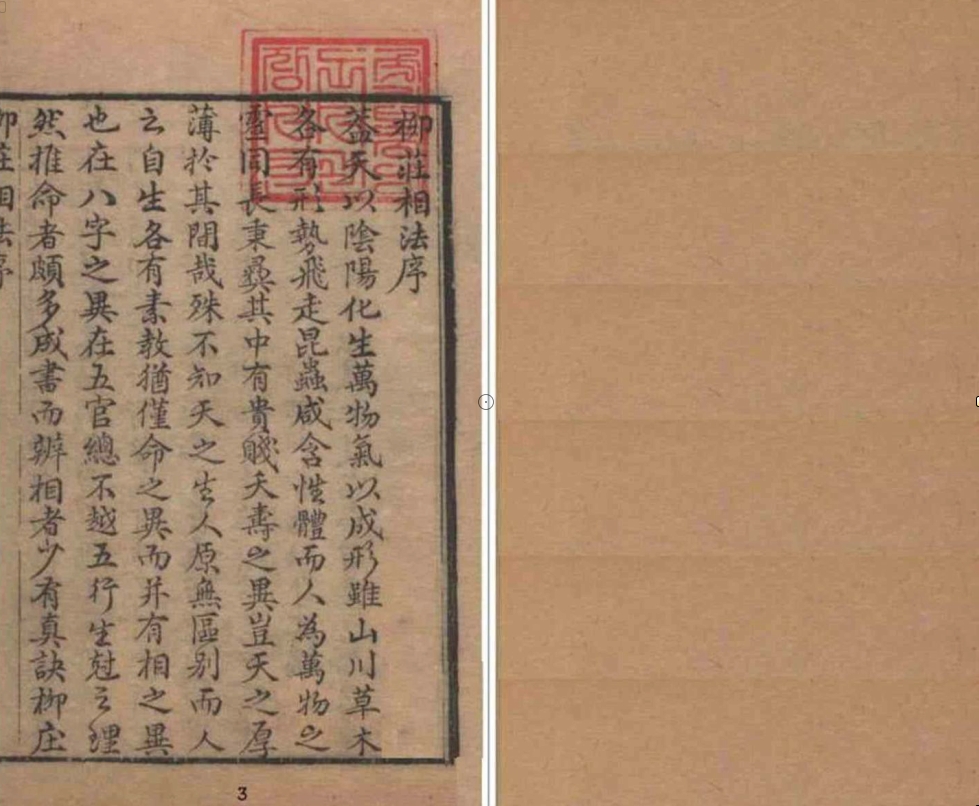 柳莊相法序
葢天以陰陽化生萬物氣以成形雖山川草木
各有形勢飛走昆蟲咸含性體而人為萬物之
靈同長秉彝其中有貴賤夭壽之異豈天之厚
薄於其間哉殊不知天之生人原無區别而人
云自生各有素教猶僅命之異而并有相之異
也在八字之異在五官總不越五行生尅之理
然推命者頗多成書而辨相者少有真訣柳庄
柳莊相法序
3